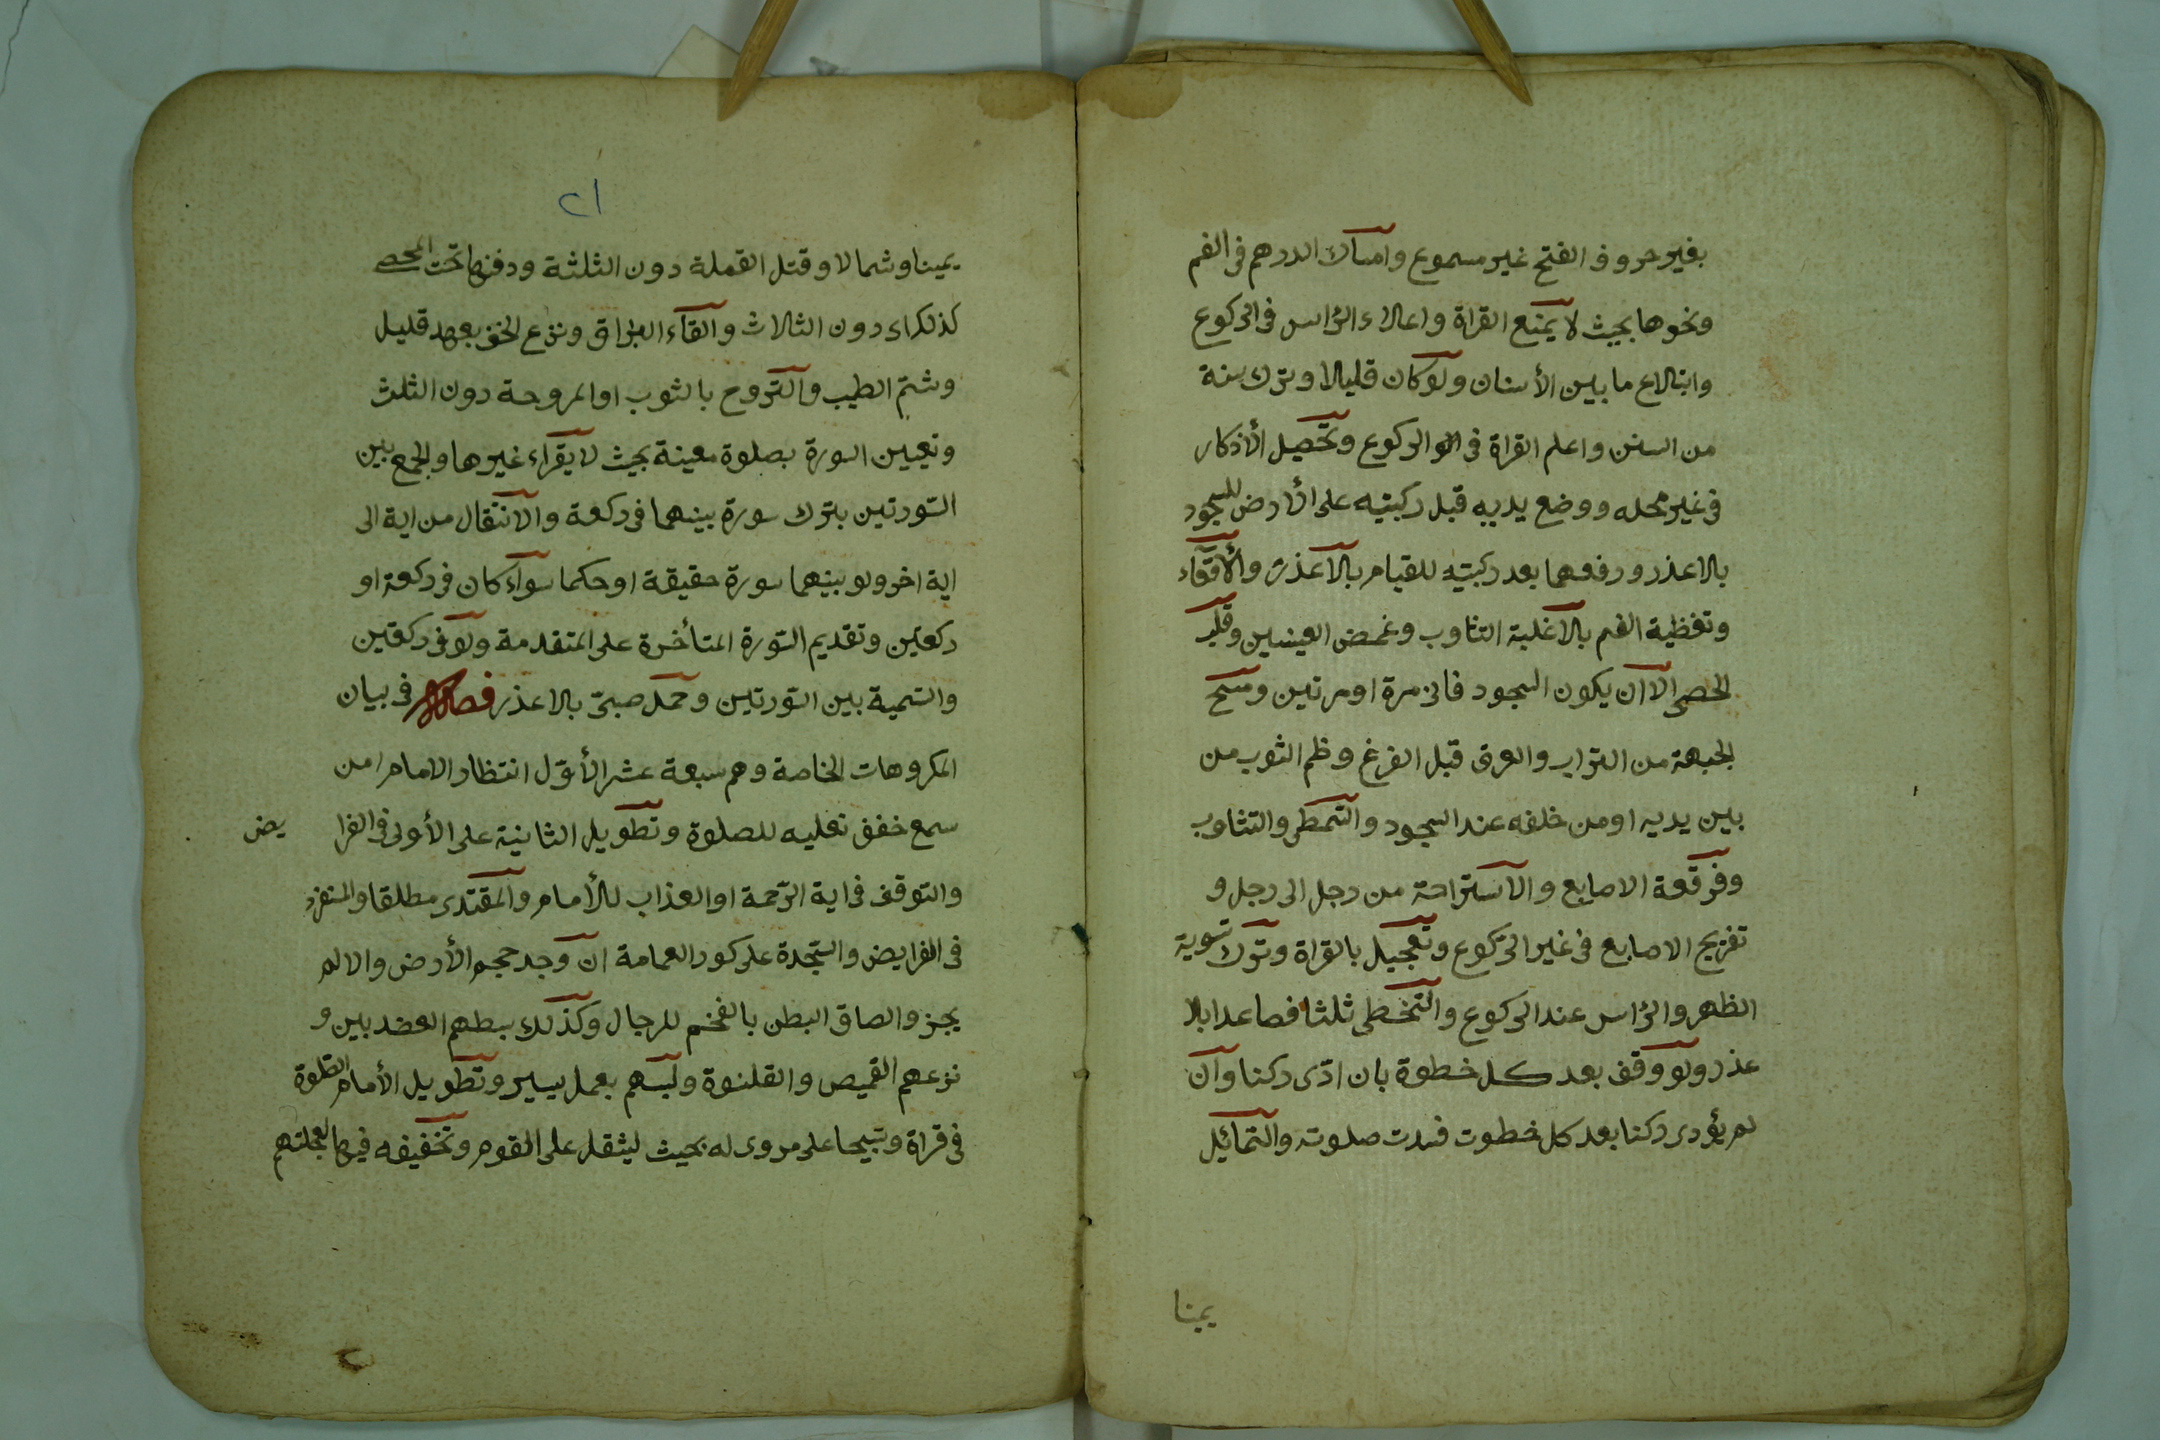 بغير حروف الفتح غير مسموع وامساك الدرهم فى الفم
ونحوها بحيث لا يمنع القراة واعلاء الرّاس فى الركوع
وابتلاع ما بين الأسنان ولو كان قليلا وترك سنة
من السنن والقراة فى الركوع وتحصيل الأذكار
فى غير محله ووضع يديه قبل ركبتيه على الأرض للسجود
بلا عذر ورفعهما بعد ركبتيه للقيام بلا عذر والأقعاء
وتغطية الفم بلا غلبة التثاوب وغمض العينين وقلب
الحصى الا ان يكون السجود فانه مرة او مرتين ومسح
الجبهة من التراب والعرق قبل الفرغ وظم الثوب من
بين يديه او من خلفه عند السجود والتمطى والتثاوب
وفرقعة الاصابع والاستراحة من رجل الى رجل و
تفريج الاصابع فى غير الركوع وتعجيل بالقراة وترك تسوية
الظهر والرّاس عند الركوع والتخطى ثلثا فصاعدا بلا
عذر ولو وقف بعد كل خطوة بان ادّى ركنا وان
لم يؤدى ركنا بعد كل خطوت فسدت صلوته والتمائيل
يمينا
٢١
يمينا وشمالا وقتل القملة دون الثلثة ودفنها تحت الحصى
كذلك اى دون الثلاث والقاء البزاق ونزع الخف بعهد قليل
وشتم الطيب والتروح بالثوب او المروحة دون الثلث
وتعيين السورة بصلوة معينة بحيث لا يقراء غيرها والجمع بين
السّورتين بترك سورة بينهما فى ركعة والانتقال من اية الى
اية اخر ولو بينهما سورة حقيقة او حكما سواء كان فى ركعة او
ركعتين وتقديم السّورة المتأخرة على المتقدمة ولو فى ركعتين
والتسمية بين السّورتين وحمل صبىّ بلا عذر فصل فى بيان
المكروهات الخاصة وهم سبعة عشر الأوّل انتظار الامام امن
سمع خفق نعليه للصلوة وتطويل الثانية على الأولى فى الفرا يض
والتوقف فى اية الرّحمة او العذاب للأمام والمقتدى مطلقا والمنفرد
فى الفرايض والسّجدة على كور العمامة ان وجد حجم الأرض والا لم
يجز والصاق البطن بالفخم للرجال وكذلك ببطهم العضدبين و
نزعهم القميص والقلنوة ولبسهم بعمل يسير وتطويل الأمام الصّلوة
فى قراة وتسبيحا على مروى له بحيث ليثقل على القوم وتخفيفه فيها لعجلتهم